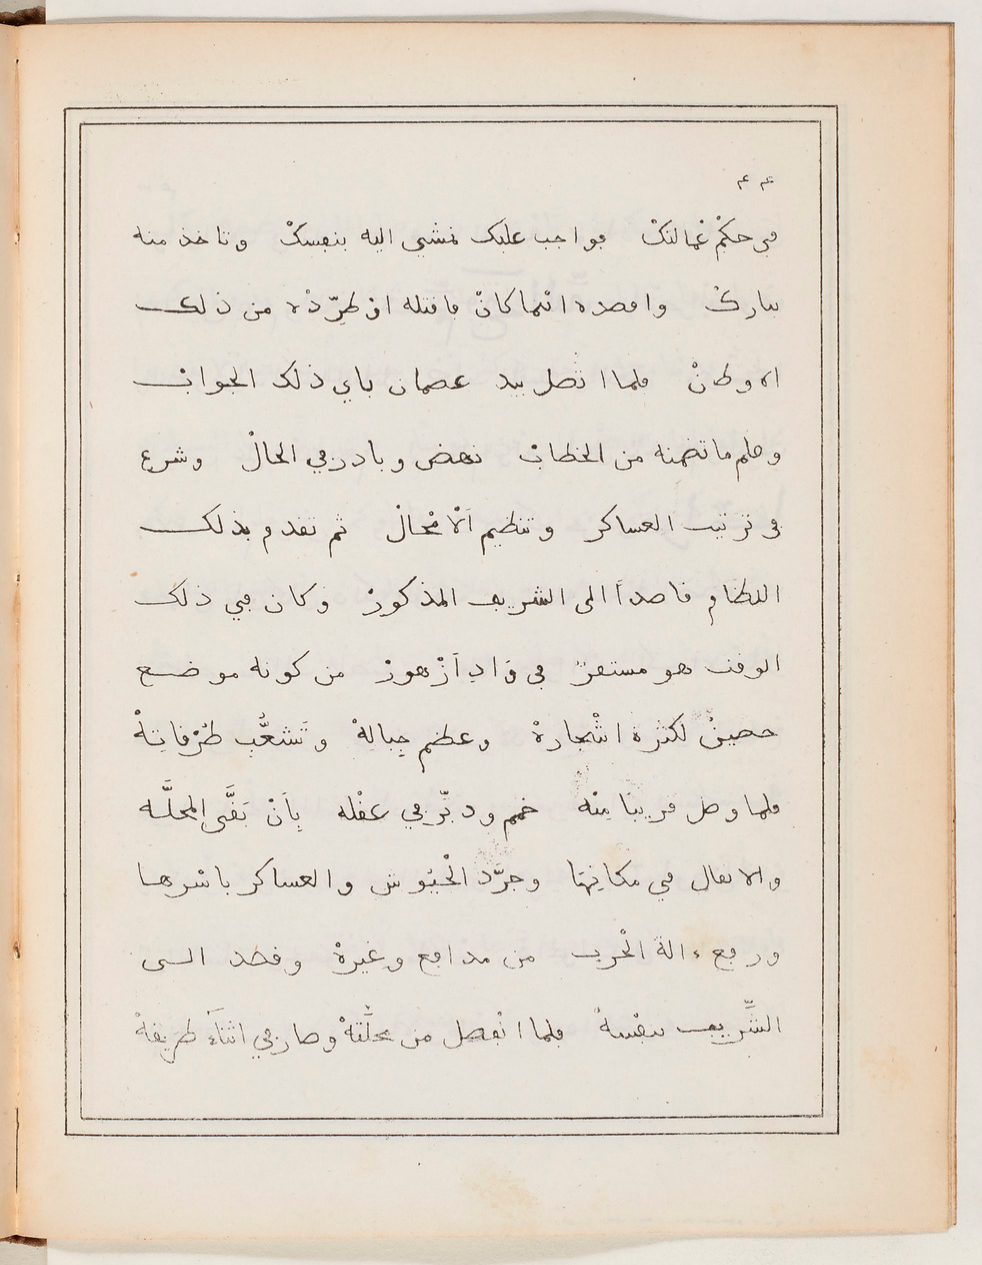 ٤٤
في حكم عمالتك فواجب عليك تمشي اليه بنفسك وتاخذ منه
ثارك واقصده اينما كان فاقتله او طرّده من ذلك
الاوطان فلما اتصل بيد عصمان باي ذلك الجواب
وعلم ما تضمنه من الخطاب نهض وبادر في الحال وشرع
في ترتيب العساكر وتنظيم الامحال ثم تقدم بذلك
النظام قاصداً الى الشريف المذكور وكان في ذلك
الوقت هو مستقرّ في وَادِ اَزْهور من كونه موضع
حصين لكثرة اشجارة وعظم جبالة وتَشعُّب طُرْقاتهْ
فلما وصل قريبا منه خمم ودبّر في عقله بِاَنْ بَقَّى المحلَّه
والاثقال في مكانها وجرّد الجيوش والعساكر باسرها
ورفع ءالة الحرب من مدافع وغيرة وقصد الى
الشَّريف بنفسة فلما انفصل من محلّتهْ وصار في اثناءَ طريقهْ